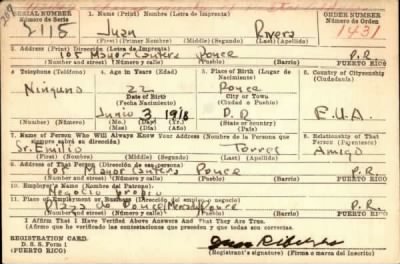 209
SERIAL NUMBER 1. Name (Print) Nombre (Letra de Imprenta) ORDER NUMBER
Número de Serie Número de Orden
2118 Juan Rivera 1431
(First) (Primer Nombre) (Middle) (Segundo) (Last) (Apellido)
2. Address (Print) Dirección (Letra de Imprenta)
105 Mayor Ponce P.R.
Number and street) (Número y calle) (Town) (Pueblo) Barrio) PUERTO RICO
3. Telephone (Teléfono) 4. Age in Years (Edad) 5. Place of Birth (Lugar de Nacimiento) 6. Country of Citizenship (Ciudadanía)
Ninguno 22 Ponce
Date of Birth City or Town
(Fecha Nacimiento) (Ciudad o Pueblo)
Junio 3 1918 P.R E.U.A.
Number) (Número) (Mo.) (Mes) (Day) (Día) (Yr.) (Año) (State or country) (Estado o país)
7. Name of Person Who Will Always Know Your Address (Nombre de la Persona que siempre sabrá su dirección) 8. Relationship of That Person (Parentesco)
Sr. Emilio Torres Amigo
(First) (Primer Nombre) (Middle) (Segundo) (Last) (Apellido)
9. Address of That Person (Dirección de esa persona)
105 Mayor Ponce P.R.
Number and street) (Número y calle) (Town) (Pueblo) Barrio) PUERTO RICO
10. Employer's Name (Nombre del Patrono)
Negocio propio
11. Place of Employment or Business (Dirección del empleo o negocio)
Plaza do Ponce Ponce P.R.
Number and street) (Número y calle) (Town) (Pueblo) Barrio) PUERTO RICO
I Affirm That I Have Verified Above Answers and That They Are True.
(Afirmo que he verificado las contestaciones que preceden y que todas son correctas).
REGISTRATION CARD.
D. S. S. Form 1
(PUERTO RICO)
(Registrant's signature) (Firma o marca del Inscrito)